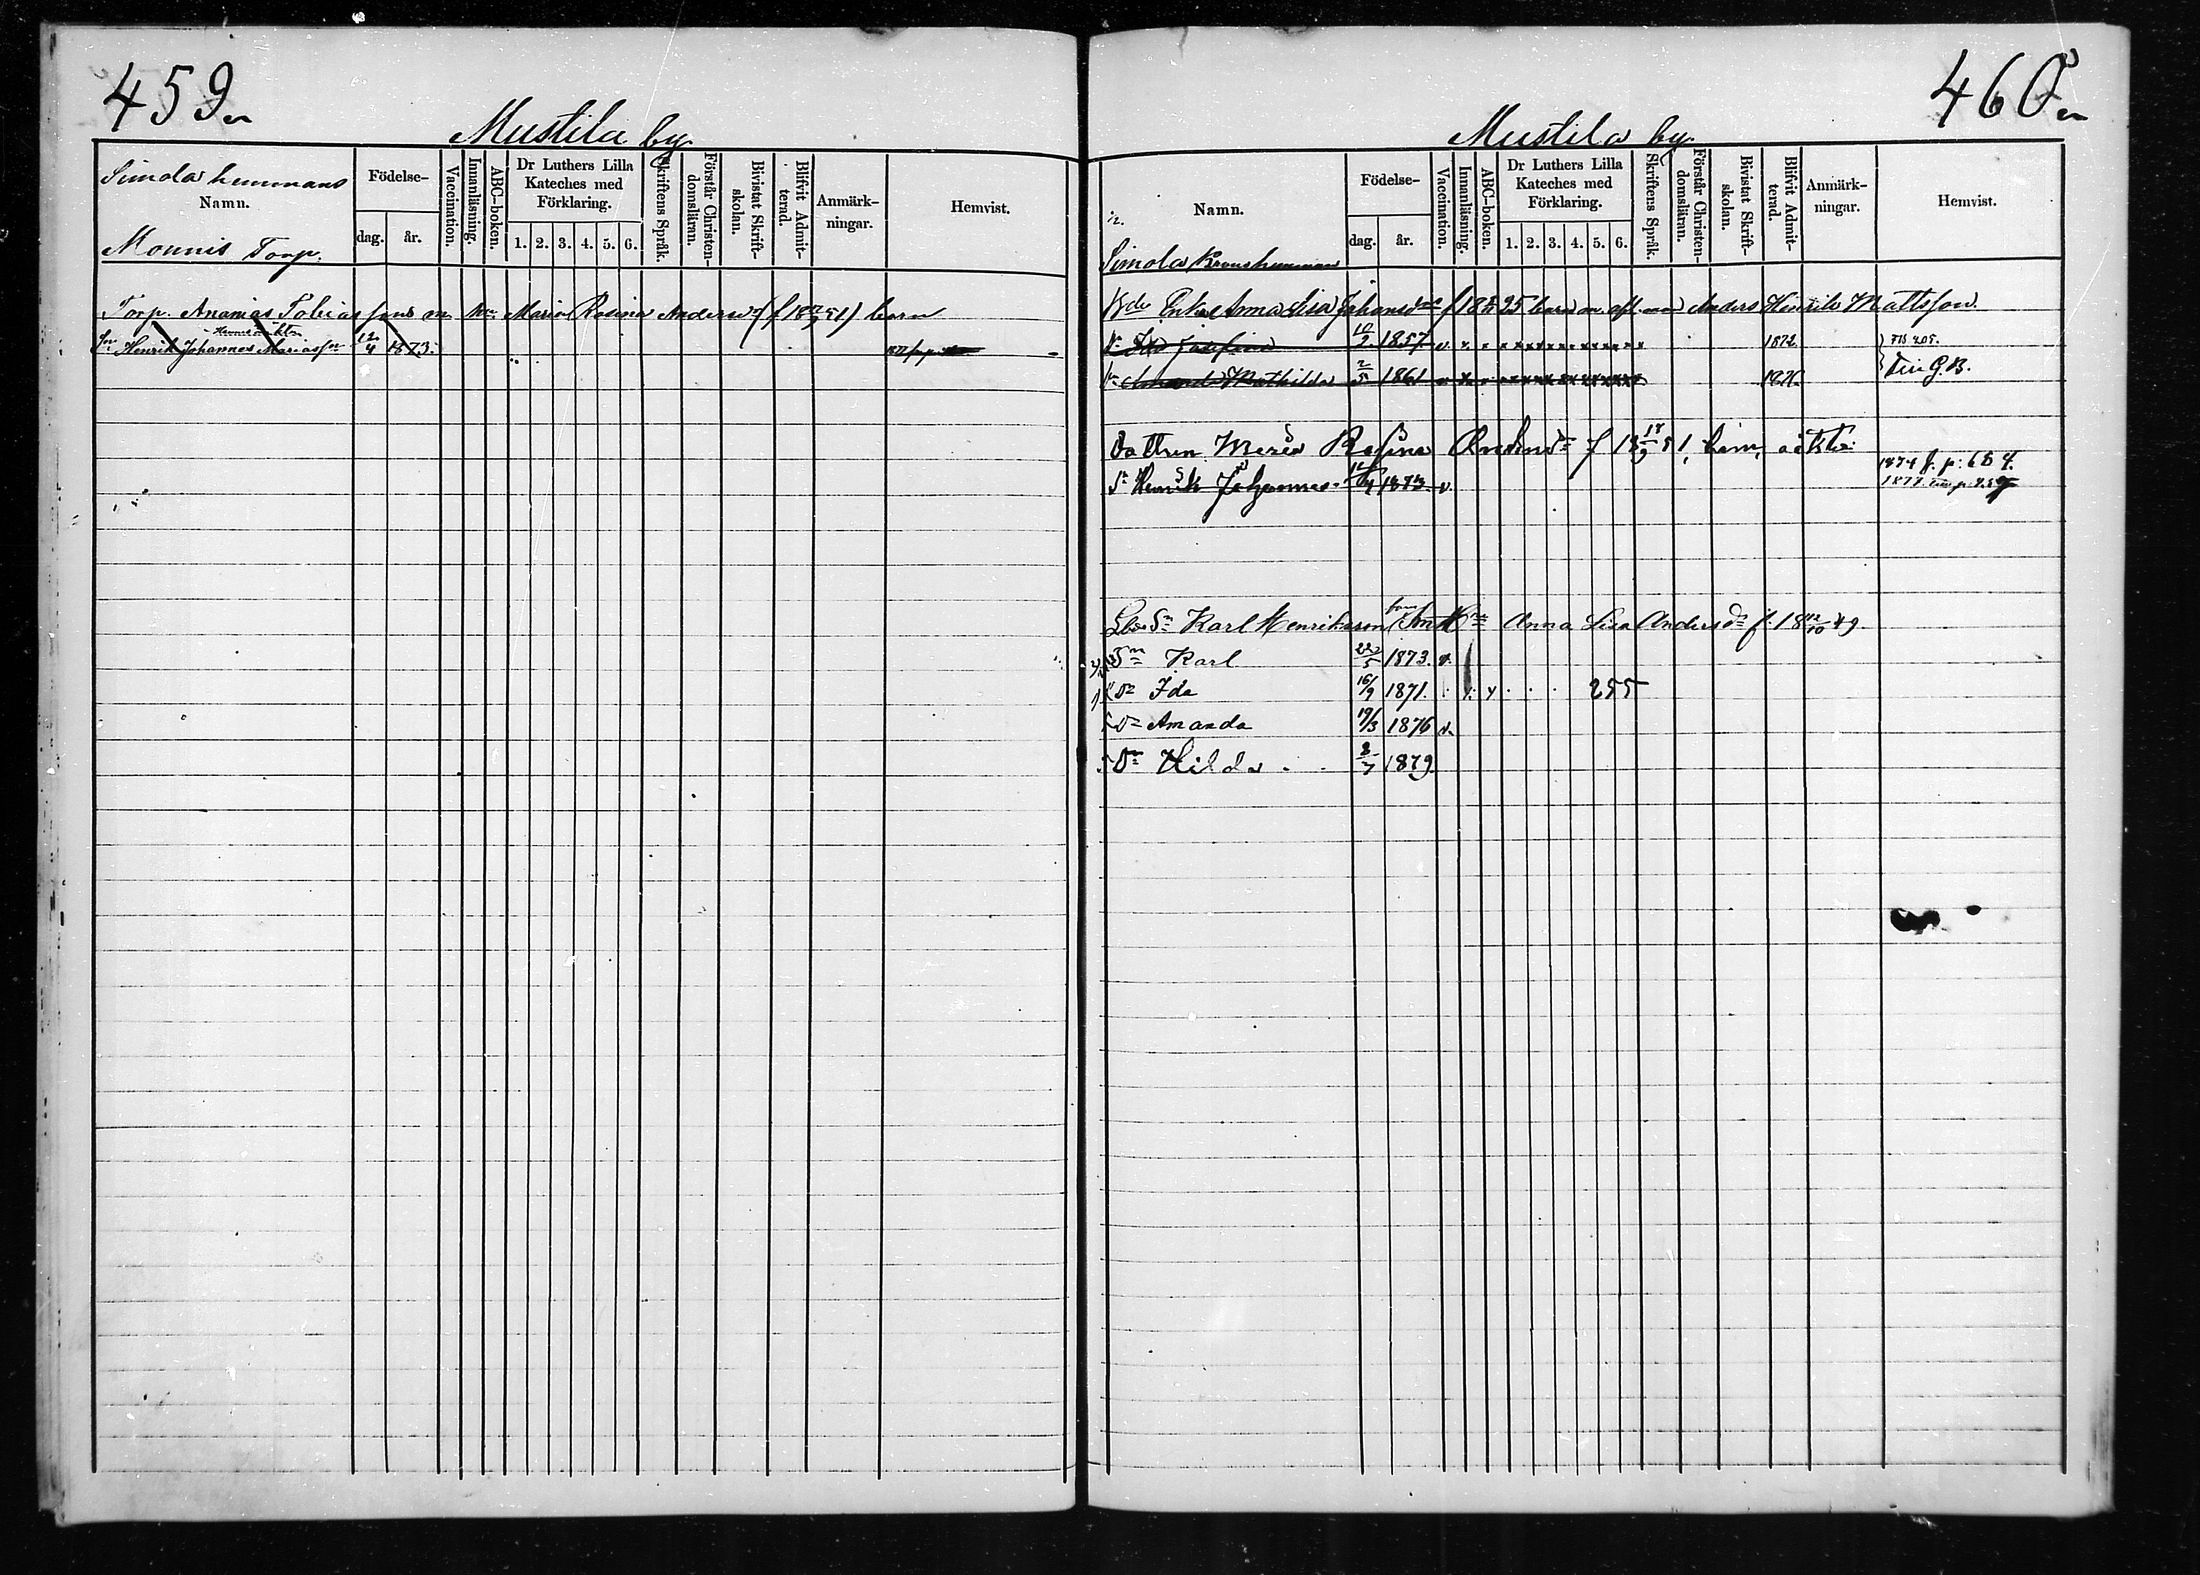 459
Mustila by
Simola hemmans
Namn.
Födelse-
dag. år.
Vaccination.
Innanläsning.
ABC-boken.
Dr Luthers Lilla
Kateches med
Förklaring.
1. 2. 3. 4. 5. 6.
Skriftens Språk.
Förstår Christen-
domsläran.
Bivistat Skrift-
skolan.
Blifvit Admit-
terad.
Anmärk-
ningar.
Hemvist.
Monnis Torp.
Torp. Ananias Tobias sons m Hu Maria Rosina Andersdr barn
Henrik Johannes Mariasson 12/4 1873.
460
Mustila by
Namn.
Födelse-
dag. år.
Vaccination.
Innanläsning.
ABC-boken.
Dr Luthers Lilla
Kateches med
Förklaring.
1. 2. 3. 4. 5. 6.
Skriftens Språk.
Förstår Christen-
domsläran.
Bivistat Skrift-
skolan.
Blifvit Admit-
terad.
Anmärk-
ningar.
Hemvist.
Simola Kronohemman
Enka Anna Lisa Johansdr f 18 25 barn m. afl. man Anders Henrik Mattsson.
Ida Josefina 10/2 1857 v x x x x x x x x x 1872
Amanda Mathilda 2/5 1861 1876 G.B.
Dottren Maria Rosina Andersdr f 18 18/9 51, barn, oäkta:
Sn Henrik Johannes 12/4 1873 v. 1874 f. p. 684.
1877
Sn Karl Henriksson barn m H Anna Lisa Andersdr f. 18 12/10 49.
Sn Karl 22/5 1873. v.
Dr Ida 16/9 1871. 255
Dr Amanda 19/3 1876 v.
Dr Hilda 2/7 1879.